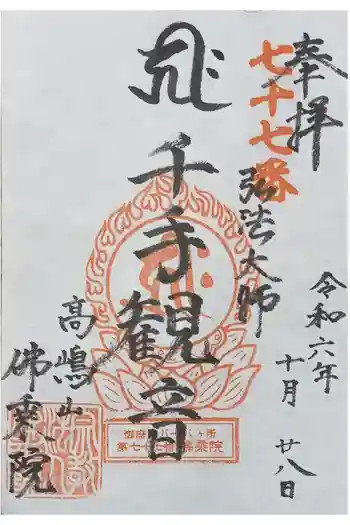 奉拝
七十七番
弘法大師
千手観音
高嶋山
佛乗院
令和六年
十月
廿八日
第七十七番 佛乗院